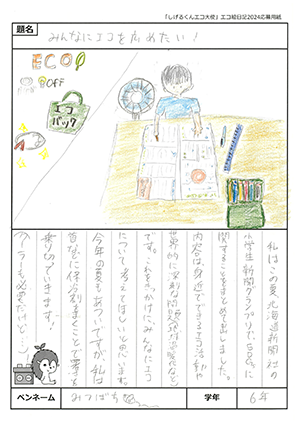 「しげるくんエコ大使」エコ絵日記2024応募用紙
題名
みんなにエコを広めたい!
ECO!
OFF
エコ
バック
私はこの夏、北海道新聞社の
小学生新聞グランプリで、SDGsに
関することをまとめて出しました。
内容は、身近でできるエコ活動や
世界的に深刻な問題
です。これをきっかけに、みんなにエコ
について考えてほしいと思います。
今年の夏もあついですが、私は
首などに保冷剤をまくことで暑さを
乗り切っていきます!
(クーラーも必要だけど…)
ペンネーム
みつばち
学年
6年